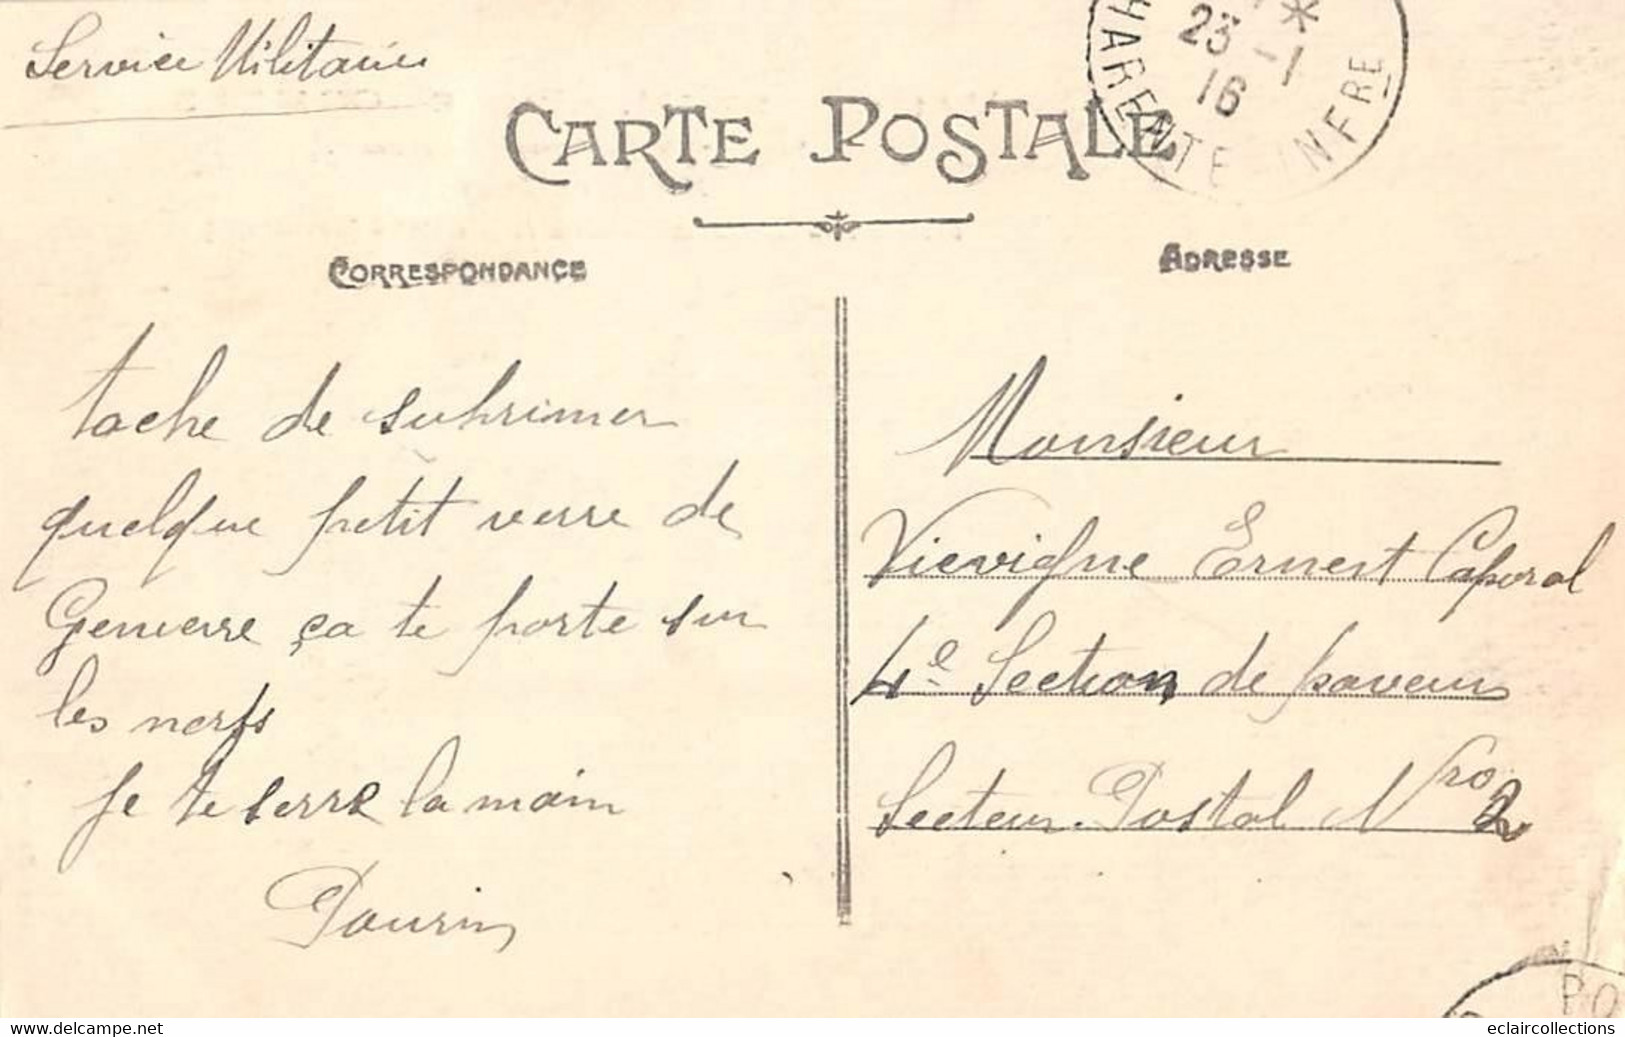 Service Militaire
CARTE POSTALE
CHARENTE INFRE
23 -1
16
*
CORRESPONDANCE
ADRESSE
tache de suhrimer
quelque petit verre de
Genverre ça te porte sur
les nerfs
je te serre la main
Pourin
Monsieur
Vievigne Ernest Caporal
4e Section de paveurs
Secteur Postal Nro 2
PO
www.delcampe.net
eclaircollections